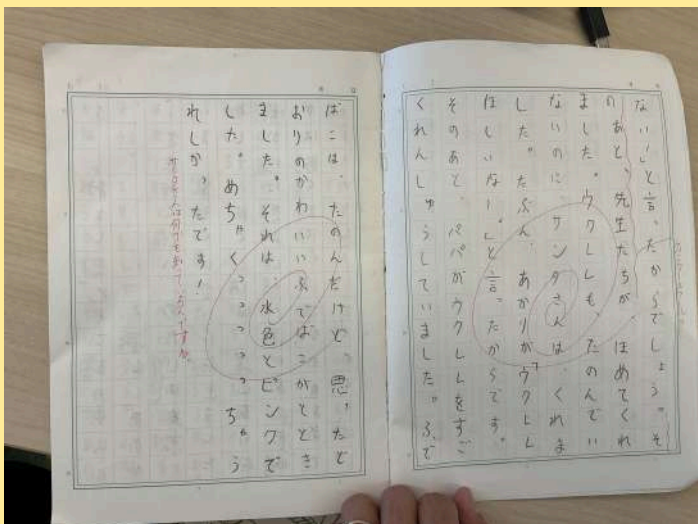 ない！」と言ったからでしょう。そ
のあと、先生たちが、ほめてくれ
ました。ウクレレも、たのんでい
ないのに、サンタさんは、くれま
した。たぶん、あかりが「ウクレレ
ほしいなー。」と言ったからです。
そのあと、パパがウクレレをすご
くれんしゅうしていました。ふで
ばこは、たのんだけど、思ったと
おりのかわいいふでばこがとどき
ました。それは、水色とピンクで
した。めちゃくっっっっっちゃう
れしかったです！